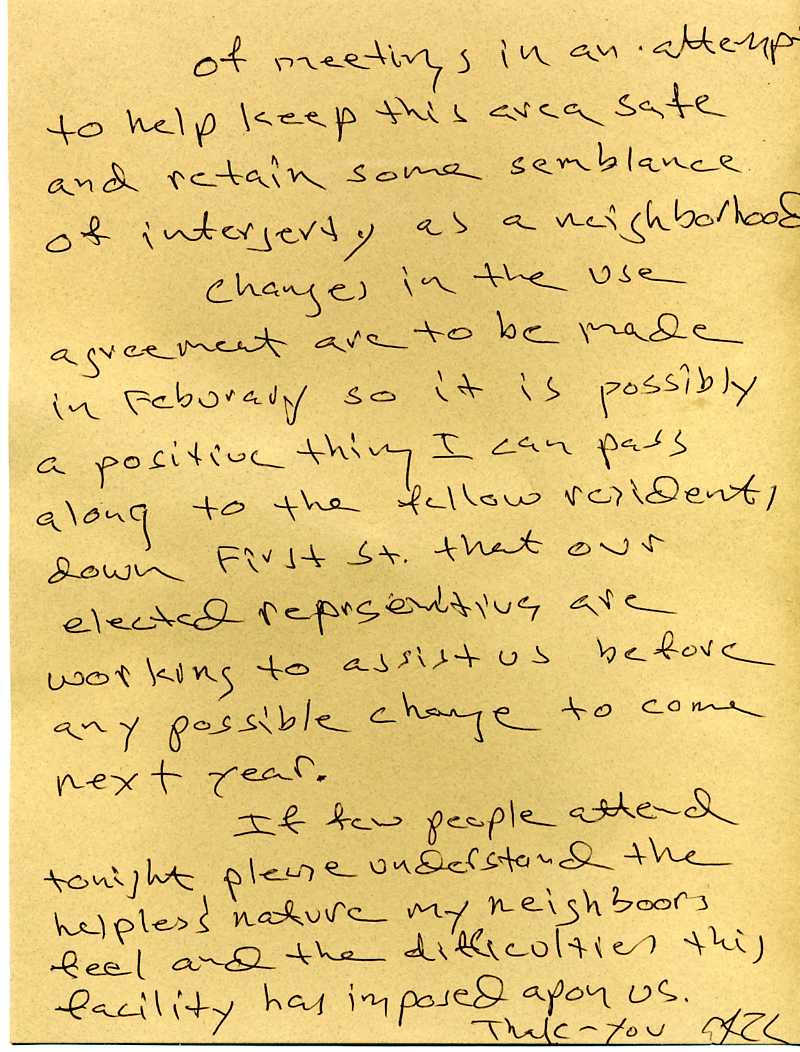 of meetings in an attempt
to help keep this area safe
and retain some semblance
of intergerty as a neighborhood
changes in the use
agreement are to be made
in Feburary so it is possibly
a positive thing I can pass
along to the fellow residents
down First St. that our
elected represenitives are
working to assist us before
any possible change to come
next year.
If few people attend
tonight please understand the
helpless nature my neighboors
feel and the difficulties this
facility has imposed apon us.
Thank-You